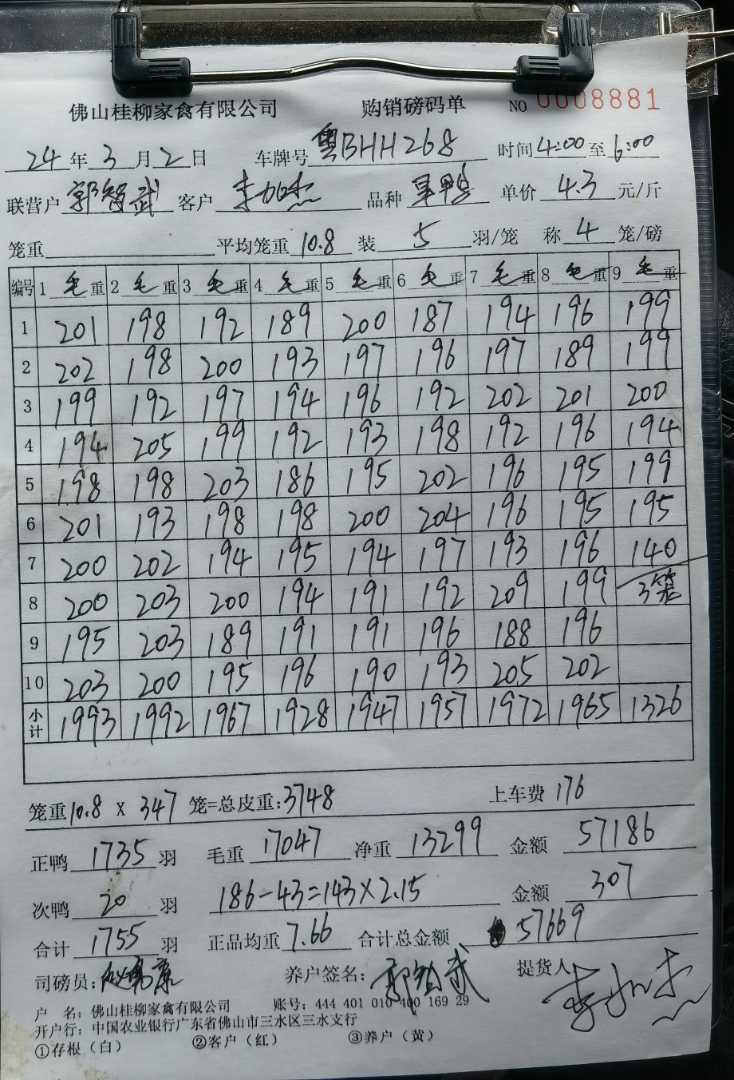 佛山桂柳家禽有限公司 购销磅码单 NO 0008881
24年3月2日 车牌号 粤BHH268 时间 4:00 至 6:00
联营户 郭智武 客户 李加杰 品种 单价 4.3 元/斤
笼重 平均笼重 10.8 装 5 羽/笼 称 4 笼/磅
编号 1 毛重 2 毛重 3 毛重 4 毛重 5 毛重 6 毛重 7 毛重 8 毛重 9 毛重
1 201 198 192 189 200 187 194 196 199
2 202 198 200 193 197 196 197 189 199
3 199 192 197 194 196 192 202 201 200
4 194 205 199 192 193 198 192 196 194
5 198 198 203 186 195 202 196 195 199
6 201 193 198 198 200 204 196 195 195
7 200 202 194 195 194 197 193 196 140
8 200 203 200 194 191 192 209 199 3笼
9 195 203 189 191 191 196 188 196
10 203 200 195 196 190 193 205 202
小计 1993 1992 1967 1928 1947 1957 1972 1965 1326
笼重 10.8 X 347 笼=总皮重:3748 上车费 176
正鸭 1735 羽 毛重 17047 净重 13299 金额 57186
次鸭 20 羽 186-43=143×2.15 金额 307
合计 1755 羽 正品均重 7.66 合计总金额 57669
司磅员: 养户签名: 郭智武 提货人 李加杰
户 名: 佛山桂柳家禽有限公司 账号: 444 401 010 400 169 29
开户行: 中国农业银行广东省佛山市三水区三水支行
①存根(白) ②客户(红) ③养户(黄)